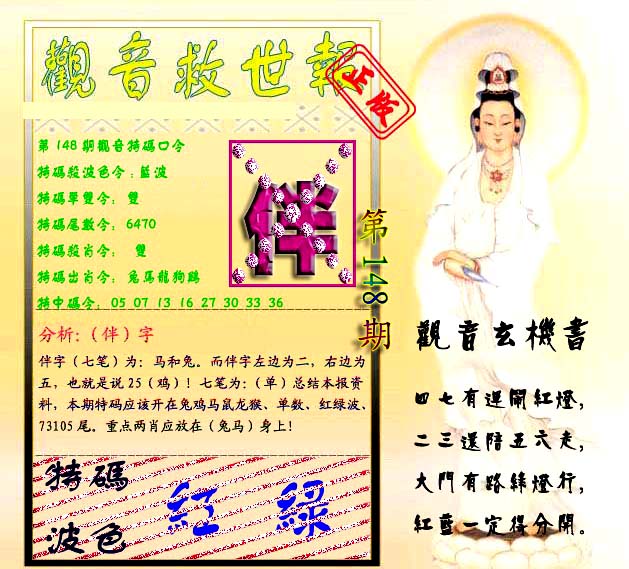 觀音救世報
正版
第148期觀音特碼口令
特碼殺波色令:藍波
特碼單雙令: 雙
特碼尾數令: 6470
特碼殺肖令: 雙
特碼出肖令: 兔馬龍狗鷄
特中碼令: 05 07 13 16 27 30 33 36
伴
第148期
分析:（伴）字
伴字（七笔）为：马和兔。而伴字左边为二，右边为
五，也就是说25（鸡）！七笔为：（单）总结本报资
料，本期特码应该开在兔鸡马鼠龙猴、单数、红绿波、
73105尾。重点两肖应放在（兔马）身上！
特碼
波色
紅 綠
觀音玄機書
四七有運開紅燈,
二三還陪五六走,
大門有路綠燈行,
紅藍一定得分開。